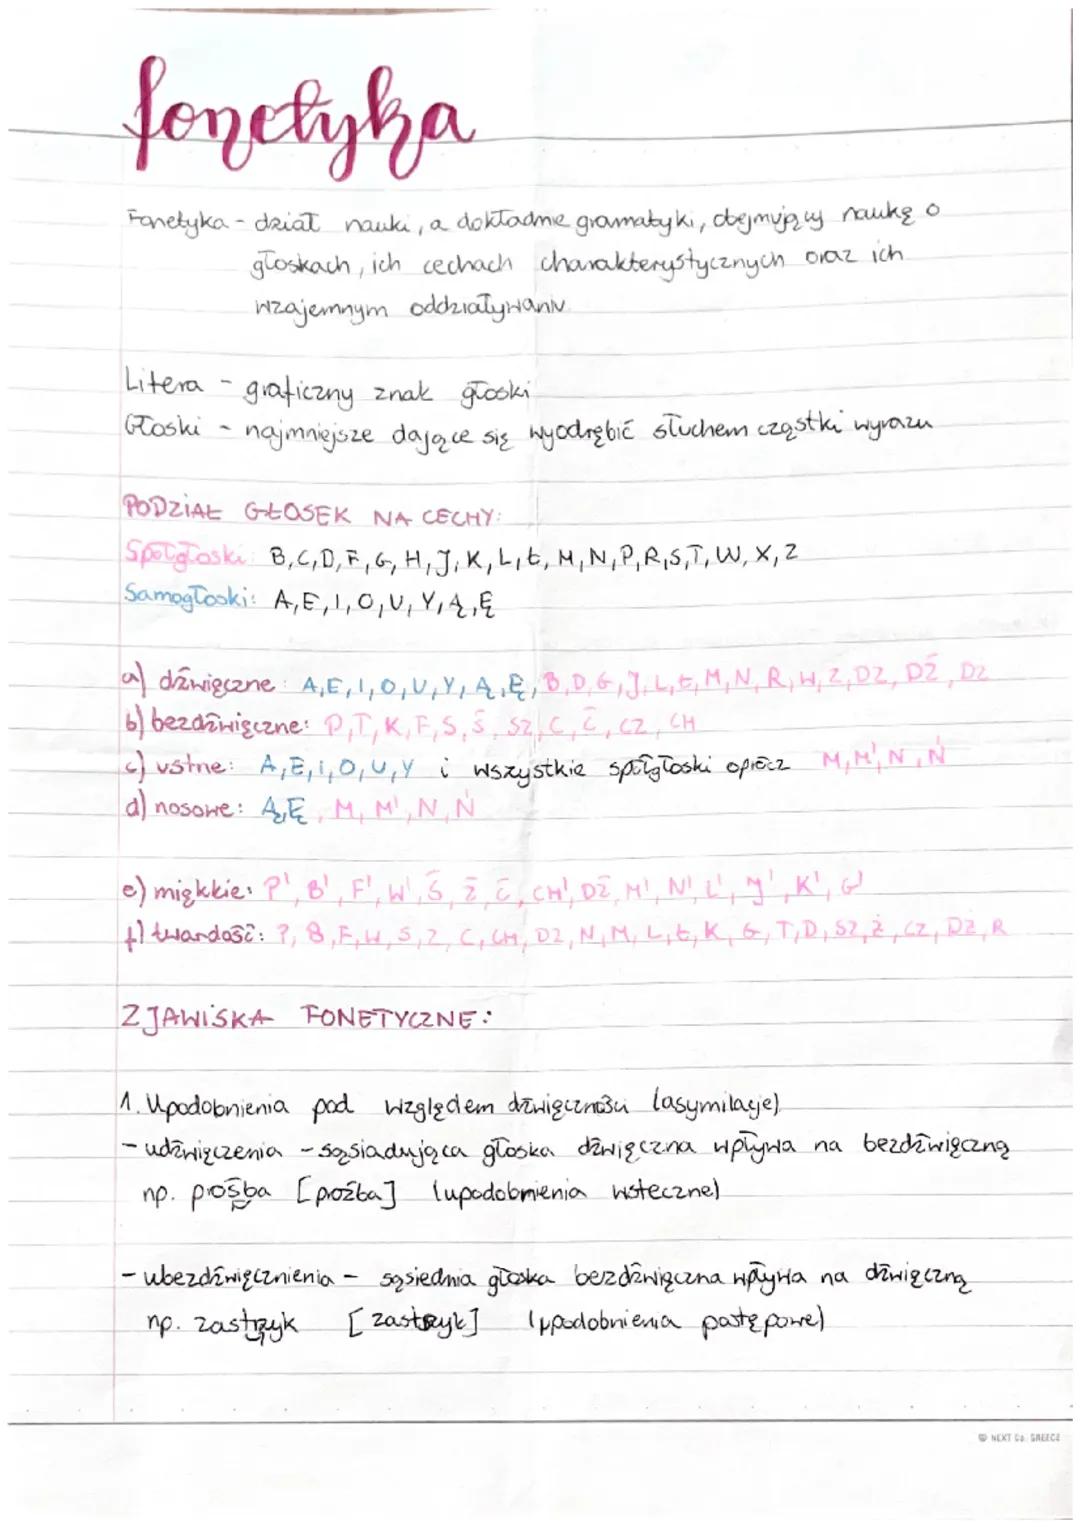 fonetyka
Fonetyka - dział nauki, a dokładnie gramatyki, obejmujący naukę o
głoskach, ich cechach charakterystycznych oraz ich
wzajemnym oddziaływaniu.
Litera - graficzny znak głoski
Głoski - najmniejsze dające się wyodrębić słuchem cząstki wyrazu
PODZIAŁ GŁOSEK NA CECHY:
Spółgłoski: B, C, D, F, G, H, J, K, L, Ł, M, N, P, R, S, T, W, X, Z
Samogłoski: A, E, I, O, U, Y, Ą, Ę
a) dźwięczne: A, E, I, O, U, Y, Ą, Ę, B, D, G, J, L, Ł, M, N, R, W, Z, DZ, DŹ, DZ
b) bezdźwięczne: P, T, K, F, S, Ś, SZ, C, Ć, CZ, CH
c) ustne: A, E, I, O, U, Y i wszystkie spółgłoski oprócz M, M', N, Ń
d) nosowe: Ą, Ę, M, M', N, Ń
e) miękkie: P', B', F', W', Ś, Ź, Ć, CH', DŹ, M', N', L', K', G'
f) twardość: P, B, F, W, S, Z, C, CH, DZ, N, M, L, Ł, K, G, T, D, SZ, Ż, CZ, DŻ, R
ZJAWISKA FONETYCZNE:
1. Upodobnienia pod względem dźwięczności (asymilacje)
- udźwięczenia - sąsiadująca głoska dźwięczna wpływa na bezdźwięczną
np. prośba [proźba] (upodobnienia wsteczne)
- ubezdźwięcznienia - sąsiednia głoska bezdźwięczna wpływa na dźwięczną
np. zastrzyk (upodobnienia postępowe)
NEXT Co. GREECE